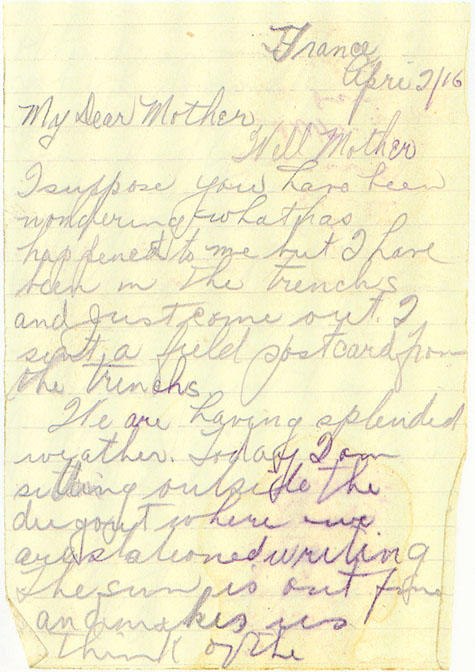 France
April 2/16
My Dear Mother
Well Mother
I suppose you have been
wondering what has
happened to me but I have
been in the trenchs
and Just come out. I
sent a field postcard from
the trenchs
We are having splended
weather. Today I am
sitting outside the
dugout where we
are stationed writing
The sun is out fine
and makes us
think of the